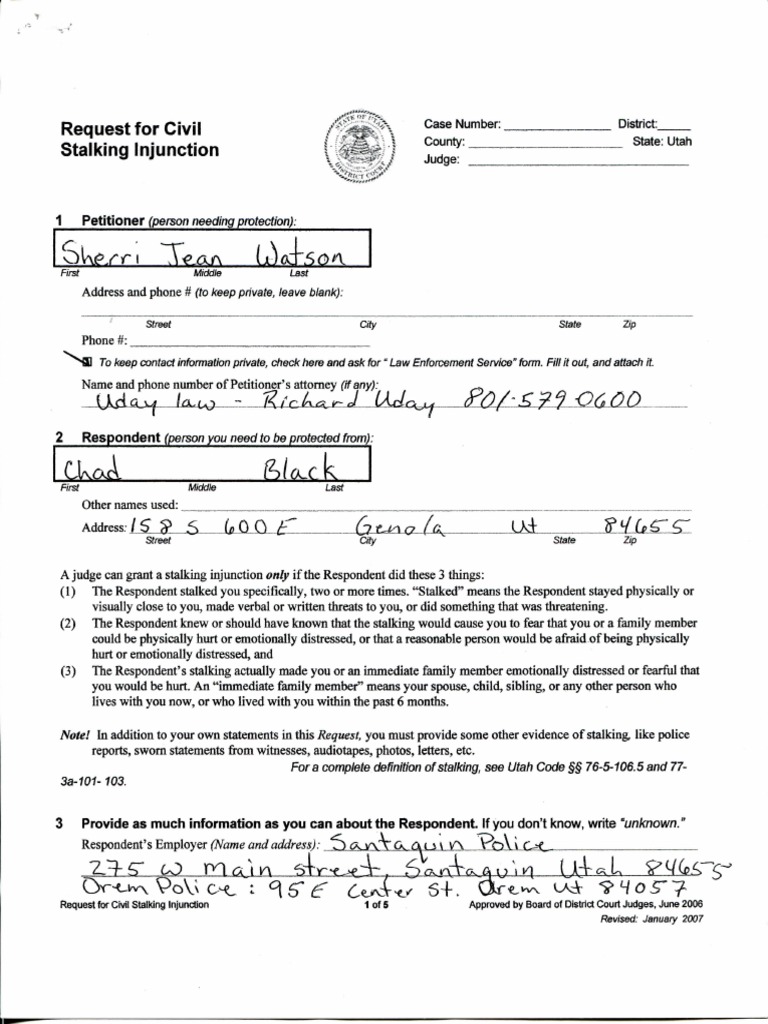 Request for Civil
Stalking Injunction
STATE OF UTAH
DISTRICT COURT
Case Number: ________________ District:_____
County: _______________________ State: Utah
Judge: _________________________________
1 Petitioner (person needing protection):
Sherri Jean Watson
First Middle Last
Address and phone # (to keep private, leave blank):
Street City State Zip
Phone #: ____________________________________
To keep contact information private, check here and ask for " Law Enforcement Service" form. Fill it out, and attach it.
Name and phone number of Petitioner's attorney (if any):
Uday law - Richard Uday 801-579-0600
2 Respondent (person you need to be protected from):
Chad Black
First Middle Last
Other names used: ____________________________________
Address: 158 S 600 E Genola Ut 84655
Street City State Zip
A judge can grant a stalking injunction only if the Respondent did these 3 things:
(1) The Respondent stalked you specifically, two or more times. "Stalked" means the Respondent stayed physically or
visually close to you, made verbal or written threats to you, or did something that was threatening.
(2) The Respondent knew or should have known that the stalking would cause you to fear that you or a family member
could be physically hurt or emotionally distressed, or that a reasonable person would be afraid of being physically
hurt or emotionally distressed, and
(3) The Respondent's stalking actually made you or an immediate family member emotionally distressed or fearful that
you would be hurt. An "immediate family member" means your spouse, child, sibling, or any other person who
lives with you now, or who lived with you within the past 6 months.
Note! In addition to your own statements in this Request, you must provide some other evidence of stalking, like police
reports, sworn statements from witnesses, audiotapes, photos, letters, etc.
For a complete definition of stalking, see Utah Code §§ 76-5-106.5 and 77-
3a-101- 103.
3 Provide as much information as you can about the Respondent. If you don't know, write "unknown."
Respondent's Employer (Name and address): Santaquin Police
275 W main street, Santaquin Utah 84655
Orem Police : 95 E Center St. Orem Ut 84057
Request for Civil Stalking Injunction 1 of 5 Approved by Board of District Court Judges, June 2006
Revised: January 2007